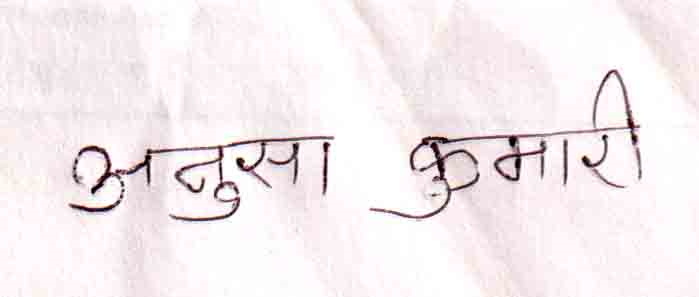 अनुसा कुमारी